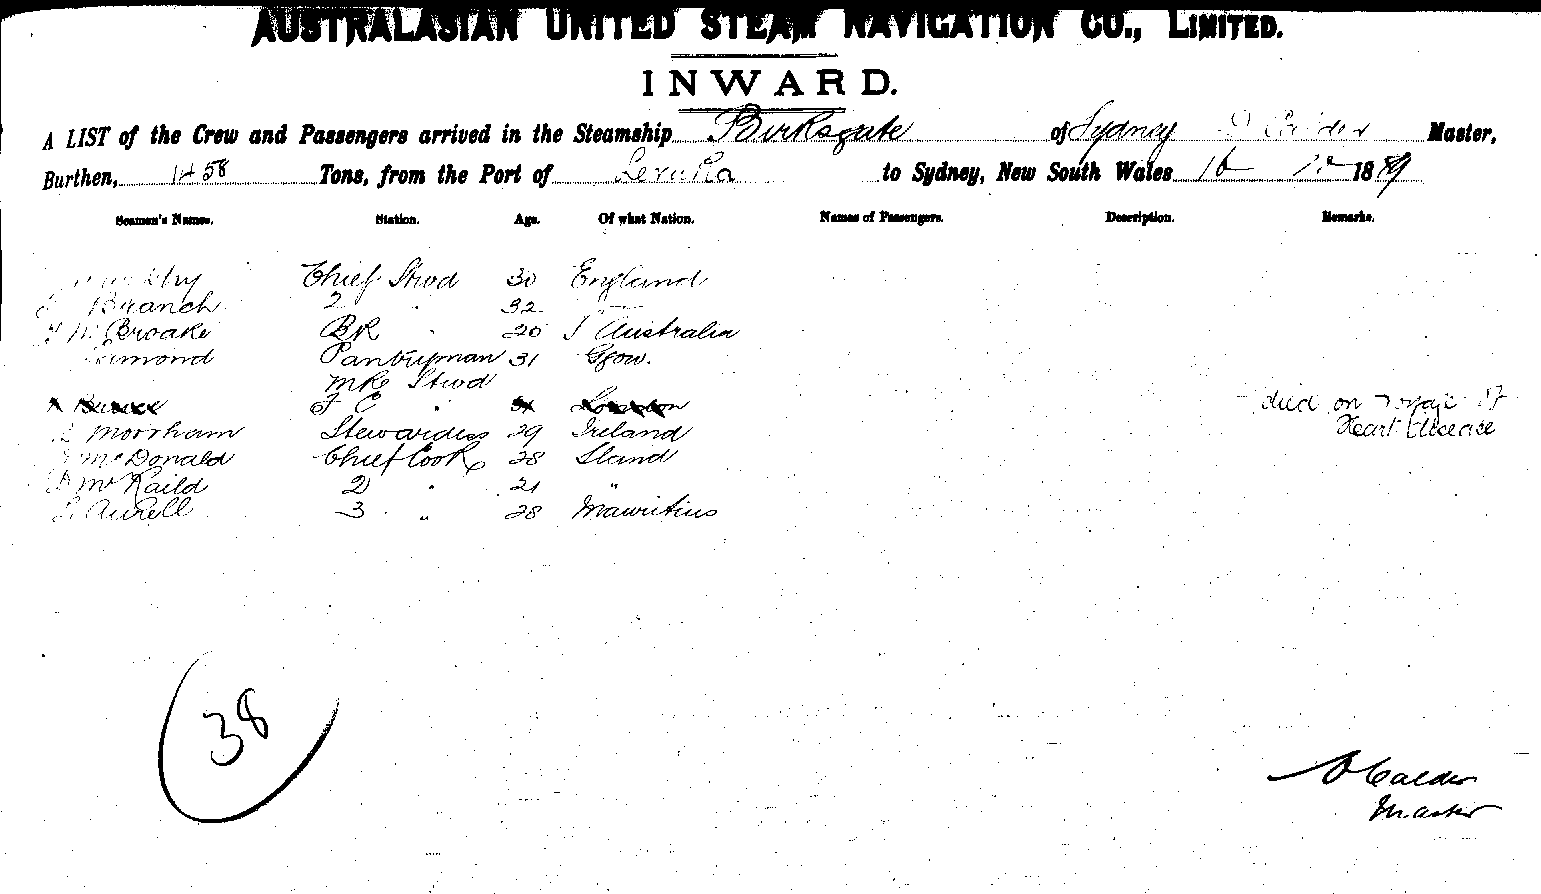 AUSTRALASIAN UNITED STEAM NAVIGATION CO., LIMITED.
INWARD.
A LIST of the Crew and Passengers arrived in the Steamship Birksgate of Sydney Calder Master,
Burthen, 1458 Tons, from the Port of Levuka to Sydney, New South Wales 16 1889
Seamen's Names. Station. Age. Of what Nation. Names of Passengers. Description. Remarks.
Chief Stwd 30 England
Branch 2 " 32
Broake BR " 20 S Australia
Pantryman 31 Ggow.
Mre Stwd
F C " died on voyage of
Moorham Stewardess 29 Ireland Heart disease
McDonald Chief Cook 28 Sland
2 " 21 "
Aurell 3 " 28 Mauritius
38
D Calder
Master